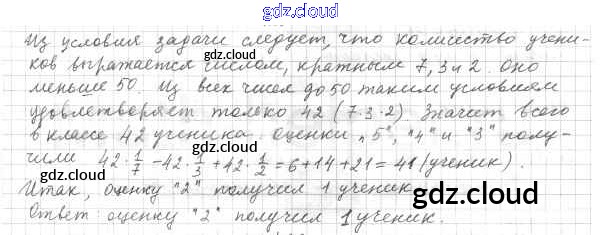 gdz.cloud
Из условия задачи следует, что количество учени-
ков выражается числом, кратным 7, 3 и 2. Оно
gdz.cloud
меньше 50. Из всех чисел до 50 таким условиям
удовлетворяет только 42 (7·3·2). Значит всего
в классе 42 ученика. Оценки "5", "4" и "3" полу-
чили 42·1/7-42·1/3+42·1/2=6+14+21=41 (ученик).
gdz.cloud
Итак, оценку "2" получил 1 ученик
gdz.cloud
Ответ: оценку "2" получил 1 ученик.
gdz.cloud